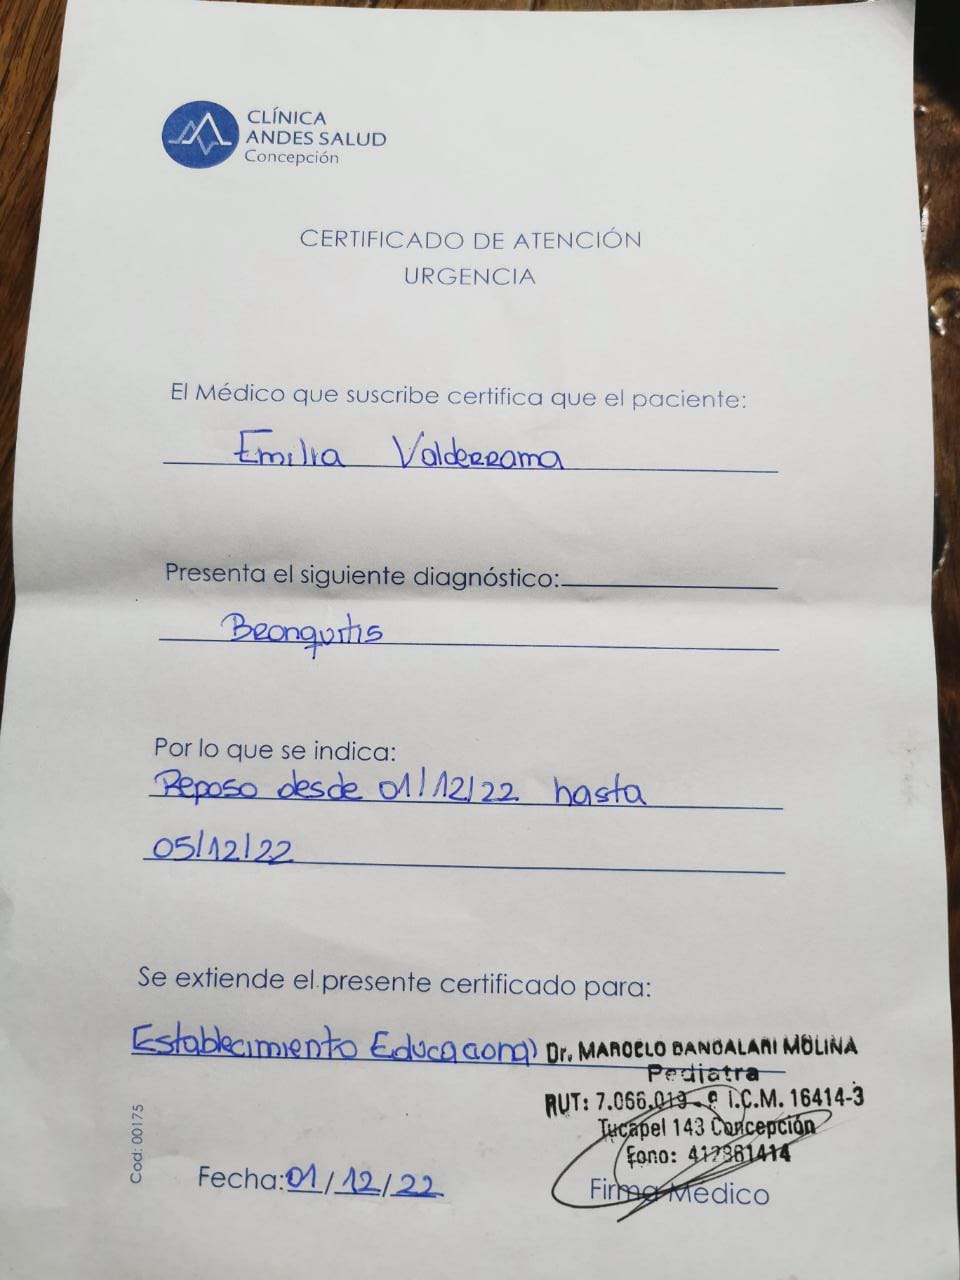 CLÍNICA
ANDES SALUD
Concepción
CERTIFICADO DE ATENCIÓN
URGENCIA
El Médico que suscribe certifica que el paciente:
Emilia Valderrama
Presenta el siguiente diagnóstico:
Bronquitis
Por lo que se indica:
Reposo desde 01/12/22 hasta
05/12/22
Se extiende el presente certificado para:
Establecimiento Educacional
Dr. MARCELO BANDALARI MOLINA
Pediatra
RUT: 7.066.019- I.C.M. 16414-3
Tucapel 143 Concepción
Fono:
Cod: 00175
Fecha: 01/12/22
Firma Médico